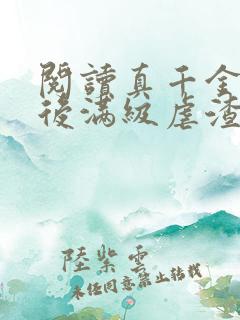 閱讀真千金
後滿級虐渣
陸紫雲
未經同意禁止轉載